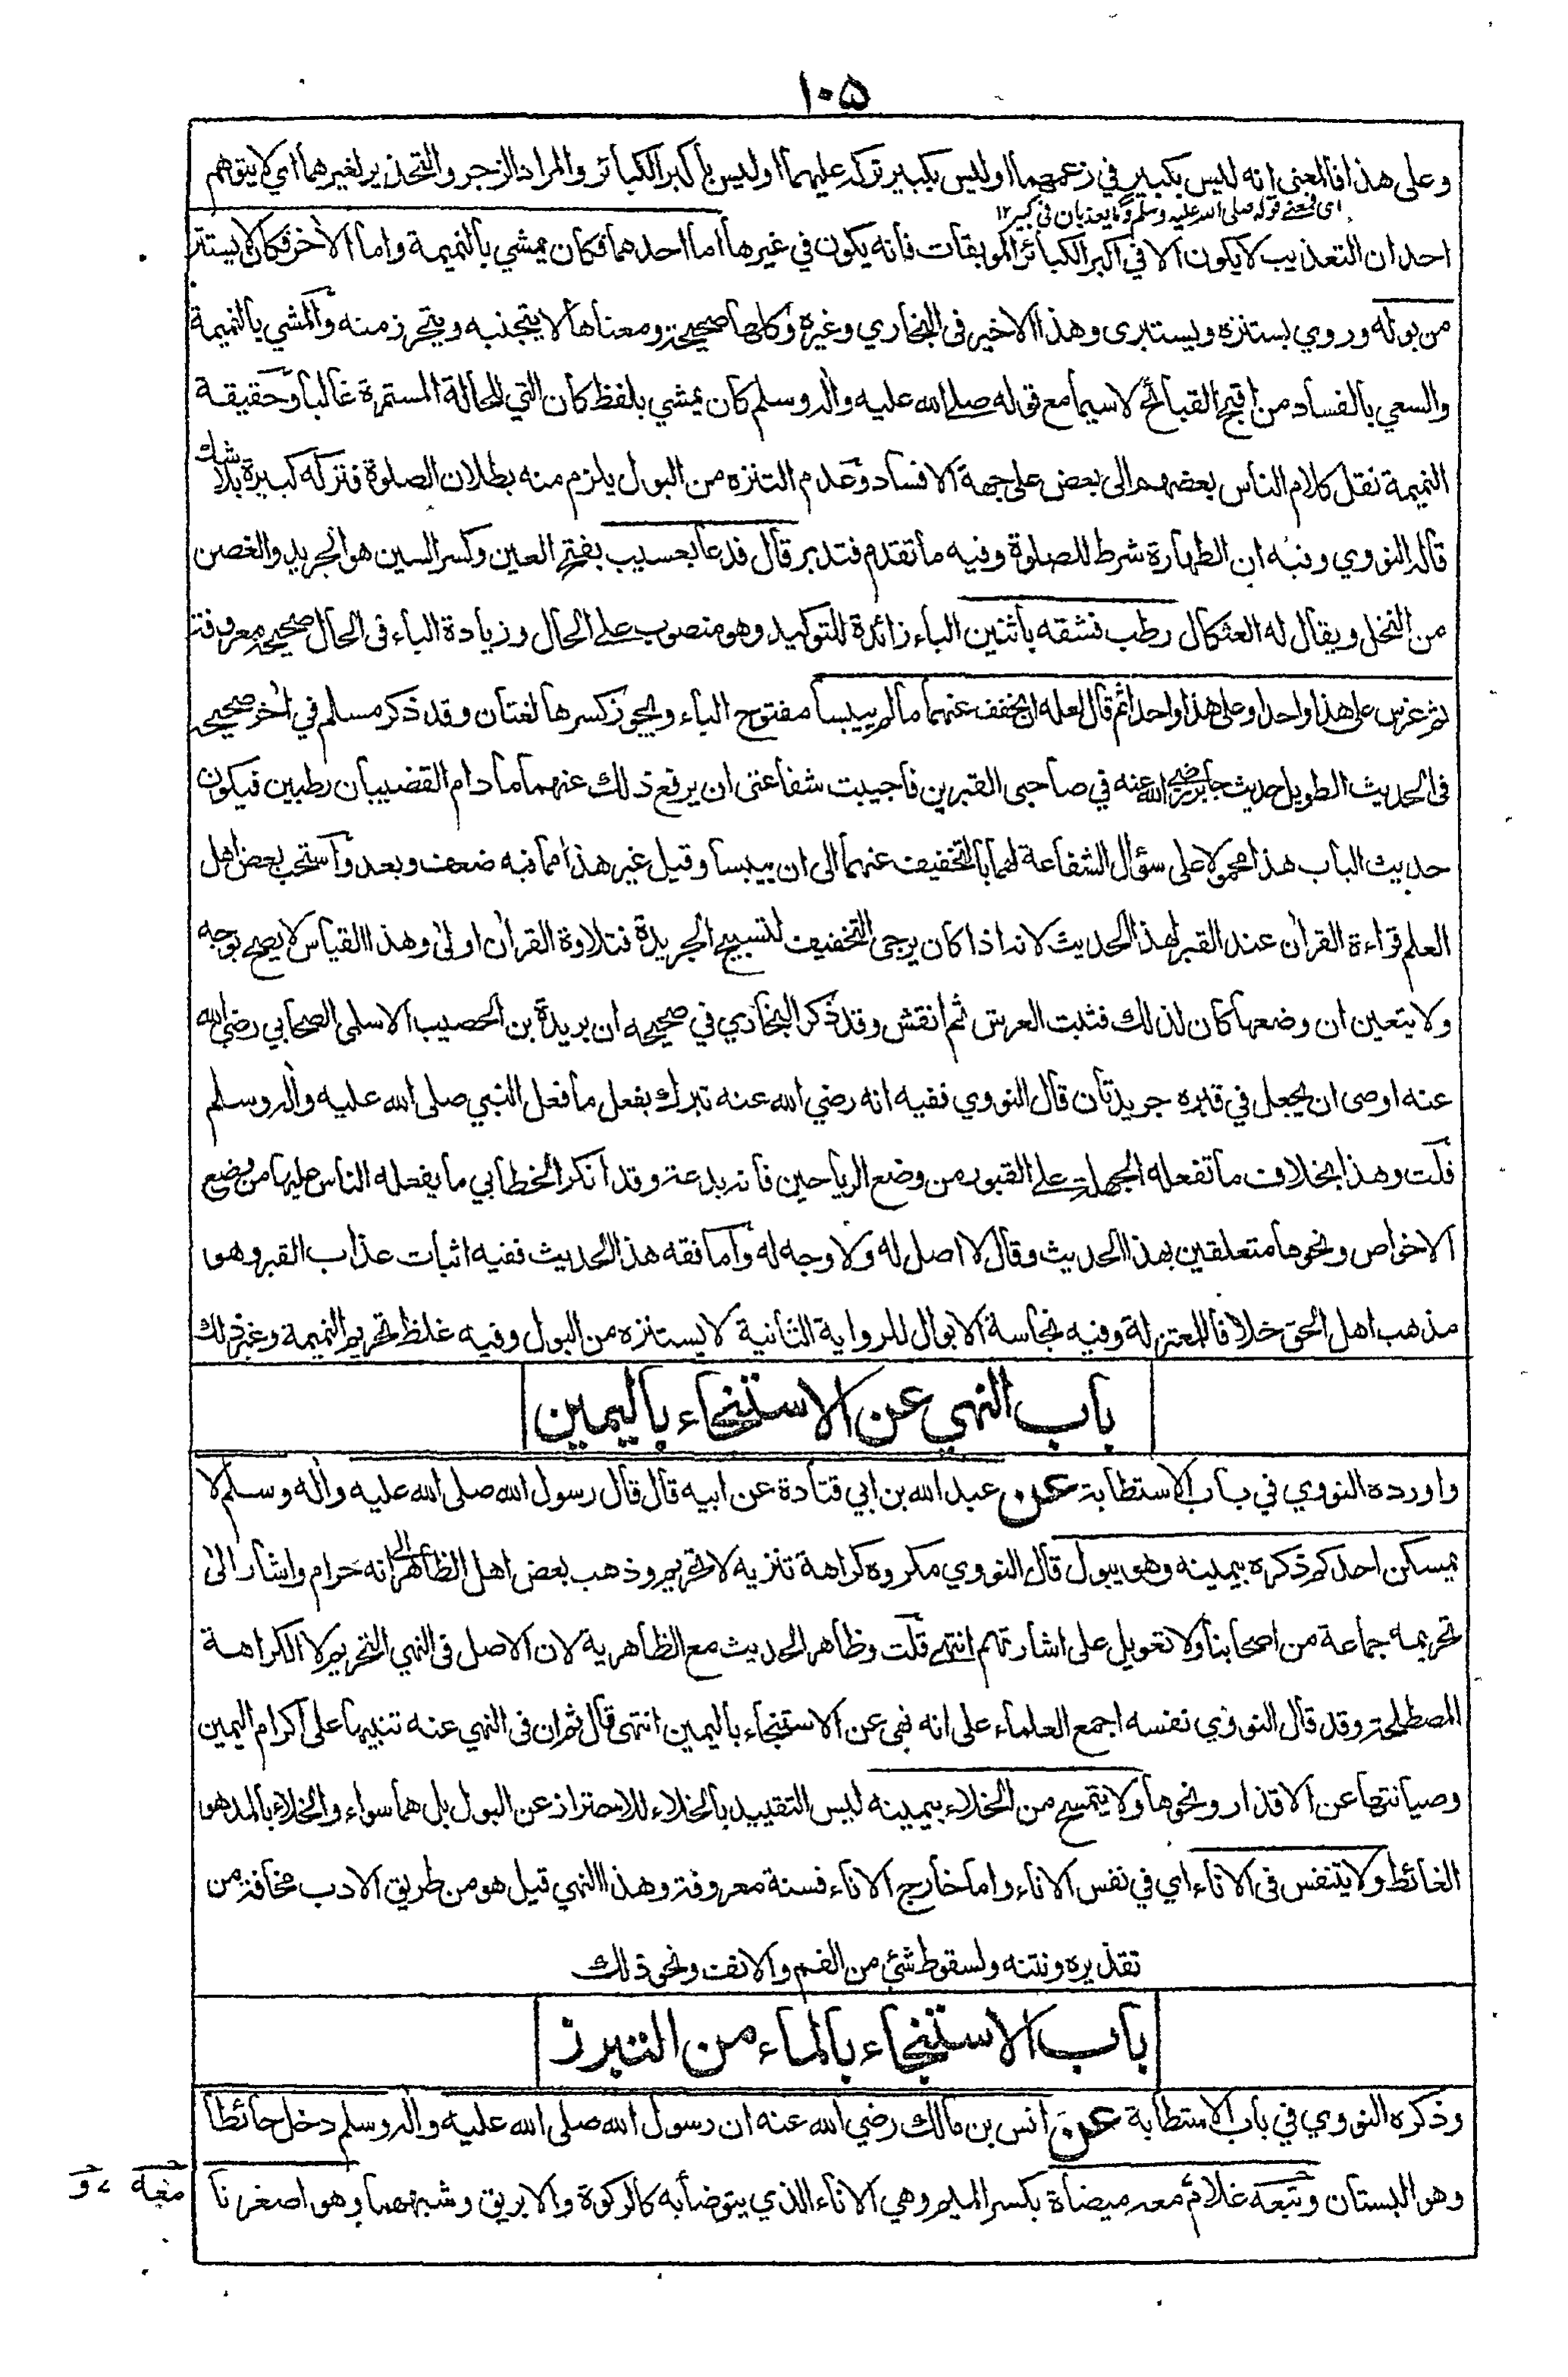 ١٠٥
وعلى هذا فالمعنى انه ليس بكبير في زعمهما اوليس بكبير تركه عليهما اوليس بأكبر الكبائر والمراد الزجر والتحذير لغيرهما اي لا يتوهم
اى فمعنى قوله صلى الله عليه وسلم وما يعذبان فى كبير ١٢
احد ان التعذيب لا يكون الا في اكبر الكبائر الموبقات فانه يكون في غيرها اما احدهما فكان يمشي بالنميمة واما الأخر فكان لا يستتر
من بوله وروي يستنزه ويستبرى وهذا الاخير فى البخاري وغيره وكلها صحيحة ومعناها لا يتجنبه ويتحرز منه والمشي بالنميمة
والسعي بالفساد من اقبح القبائح لاسيما مع قوله صلى الله عليه واٰله وسلم كان يمشي بلفظ كان التي للحالة المستمرة غالبا وحقيقة
النميمة نقل كلام الناس بعضهم الى بعض على جهة الافساد وعدم التنزه من البول يلزم منه بطلان الصلوة فتركه كبيرة بلا شك
قاله النووي ونبه ان الطهارة شرط للصلوة وفيه ما تقدم فتدبر قال فدعا بعسيب بفتح العين وكسر السين هو الجريد والغصن
من النخل ويقال له العثكال رطب فشقه باثنين الباء زائدة للتوكيد وهو منصوب على الحال وزيادة الباء فى الحال صحيح معروفة
ثم غرس على هذا واحدا وعلى هذا واحدا ثم قال لعله ان يخفف عنهما ما لم ييبسا مفتوح الباء ويجوز كسرها لغتان وقد ذكر مسلم في اٰخر صحيحه
فى الحديث الطويل حديث جابر رضي الله عنه في صاحبى القبرين فاجيبت شفاعتى ان يرفع ذلك عنهما ما دام القضيبان رطبين فيكون
حديث الباب هذا محمولا على سؤال الشفاعة لهما بالتخفيف عنهما الى ان ييبسا وقيل غير هذا مما فيه ضعف وبعد واستحب بعض اهل
العلم قراءة القراٰن عند القبر لهذا الحديث لانه اذا كان يرجى التخفيف لتسبيح الجريدة فتلاوة القراٰن اولىٰ وهذا القياس لا يصح بوجه
ولا يتعين ان وضعها كان لذلك فثبت العرش ثم انقش وقد ذكر البخاري في صحيحه ان بريدة بن الحصيب الاسلمى الصحابي رضي الله
عنه اوصى ان يجعل في قبره جريدتان قال النووي ففيه انه رضي الله عنه تبرك بفعل ما فعل النبي صلى الله عليه واٰله وسلم
قلت وهذا بخلاف ما تفعله الجهلة على القبور من وضع الرياحين فانه بدعة وقد انكر الخطابي ما يفعله الناس عليها من وضع
الاخواص ونحوها متعلقين بهذا الحديث وقال لا اصل له ولا وجه له واما فقه هذا الحديث ففيه اثبات عذاب القبر وهو
مذهب اهل الحق خلافا للمعتزلة وفيه نجاسة الابوال للرواية الثانية لا يستنزه من البول وفيه غلظ تحريم النميمة وغير ذلك
باب النهي عن الاستنجاء باليمين
واورده النووي في باب الاستطابة عن عبد الله بن ابي قتادة عن ابيه قال قال رسول الله صلى الله عليه واٰله وسلم لا
يمسكن احدكم ذكره بيمينه وهو يبول قال النووي مكروه كراهة تنزيه لا تحريم وذهب بعض اهل الظاهر الى انه حرام واشار الىٰ
تحريمه جماعة من اصحابنا ولا تعويل على اشارتهم انتهى قلت وظاهر الحديث مع الظاهرية لان الاصل فى النهي التحريم لا الكراهة
المصطلحة وقد قال النووي نفسه اجمع العلماء على انه نهي عن الاستنجاء باليمين انتهى قال ثم ان فى النهي عنه تنبيها على اكرام اليمين
وصيانتها عن الاقذار ونحوها ولا يتمسح من الخلاء بيمينه ليس التقييد بالخلاء للاحتراز عن البول بل هما سواء والخلاء بالمد هو
الغائط ولا يتنفس فى الاناء اي في نفس الاناء واما خارج الاناء فسنة معروفة وهذا النهي قيل هو من طريق الادب مخافة من
تقذيره ونتنه ولسقوط شئ من الفم والانف ونحو ذلك
باب الاستنجاء بالماء من التبرز
وذكره النووي في باب الاستطابة عن انس بن مالك رضي الله عنه ان رسول الله صلى الله عليه واٰله وسلم دخل حائطا
وهو البستان وتبعه غلام معه ميضاة بكسر الميم وهي الاناء الذي يتوضأ به كالركوة والابريق وشبههما وهو اصغرنا